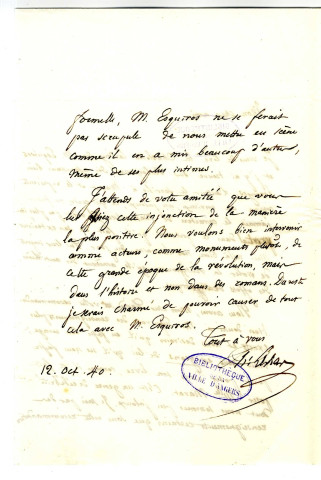 formelle, M. Esquiros ne se ferait
pas scrupule de nous mettre en scène
comme il en a mis beaucoup d'autres,
même de ses plus intimes.
J'attends de votre amitié que vous
lui fassiez cette injonction de la manière
la plus positive. Nous voulons bien intervenir
comme acteurs, comme monuments, de
cette grande époque de la révolution, mais
dans l'histoire et non dans des romans. Du reste
je serais charmé de pouvoir causer de tout
cela avec M. Esquiros.
Tout à vous
12. Oct. 40
BIBLIOTHÈQUE
DE LA
VILLE D'ANGERS